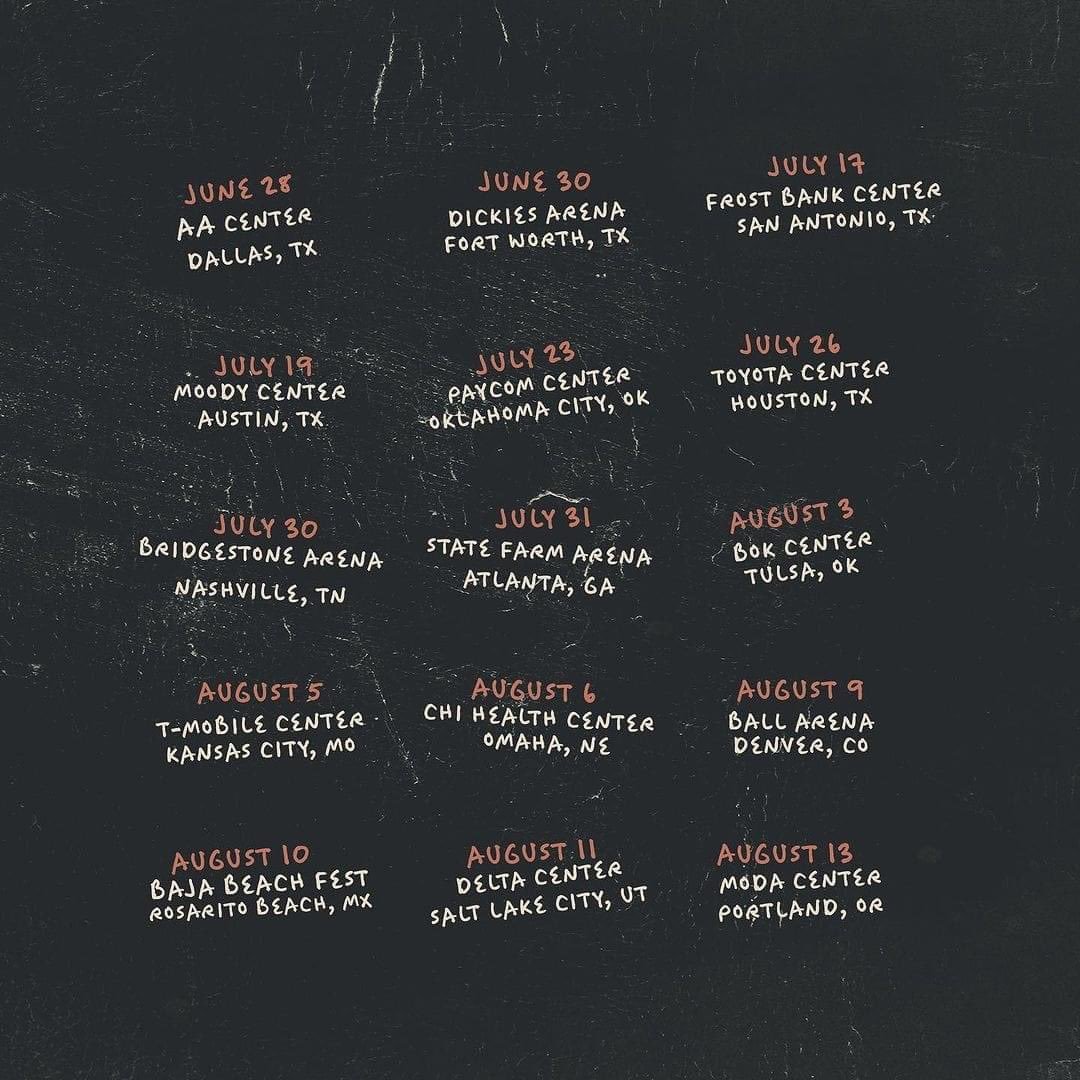 JUNE 28
AA CENTER
DALLAS, TX
JUNE 30
DICKIES ARENA
FORT WORTH, TX
JULY 17
FROST BANK CENTER
SAN ANTONIO, TX
JULY 19
MOODY CENTER
AUSTIN, TX
JULY 23
PAYCOM CENTER
OKLAHOMA CITY, OK
JULY 26
TOYOTA CENTER
HOUSTON, TX
JULY 30
BRIDGESTONE ARENA
NASHVILLE, TN
JULY 31
STATE FARM ARENA
ATLANTA, GA
AUGUST 3
BOK CENTER
TULSA, OK
AUGUST 5
T-MOBILE CENTER
KANSAS CITY, MO
AUGUST 6
CHI HEALTH CENTER
OMAHA, NE
AUGUST 9
BALL ARENA
DENVER, CO
AUGUST 10
BAJA BEACH FEST
ROSARITO BEACH, MX
AUGUST 11
DELTA CENTER
SALT LAKE CITY, UT
AUGUST 13
MODA CENTER
PORTLAND, OR